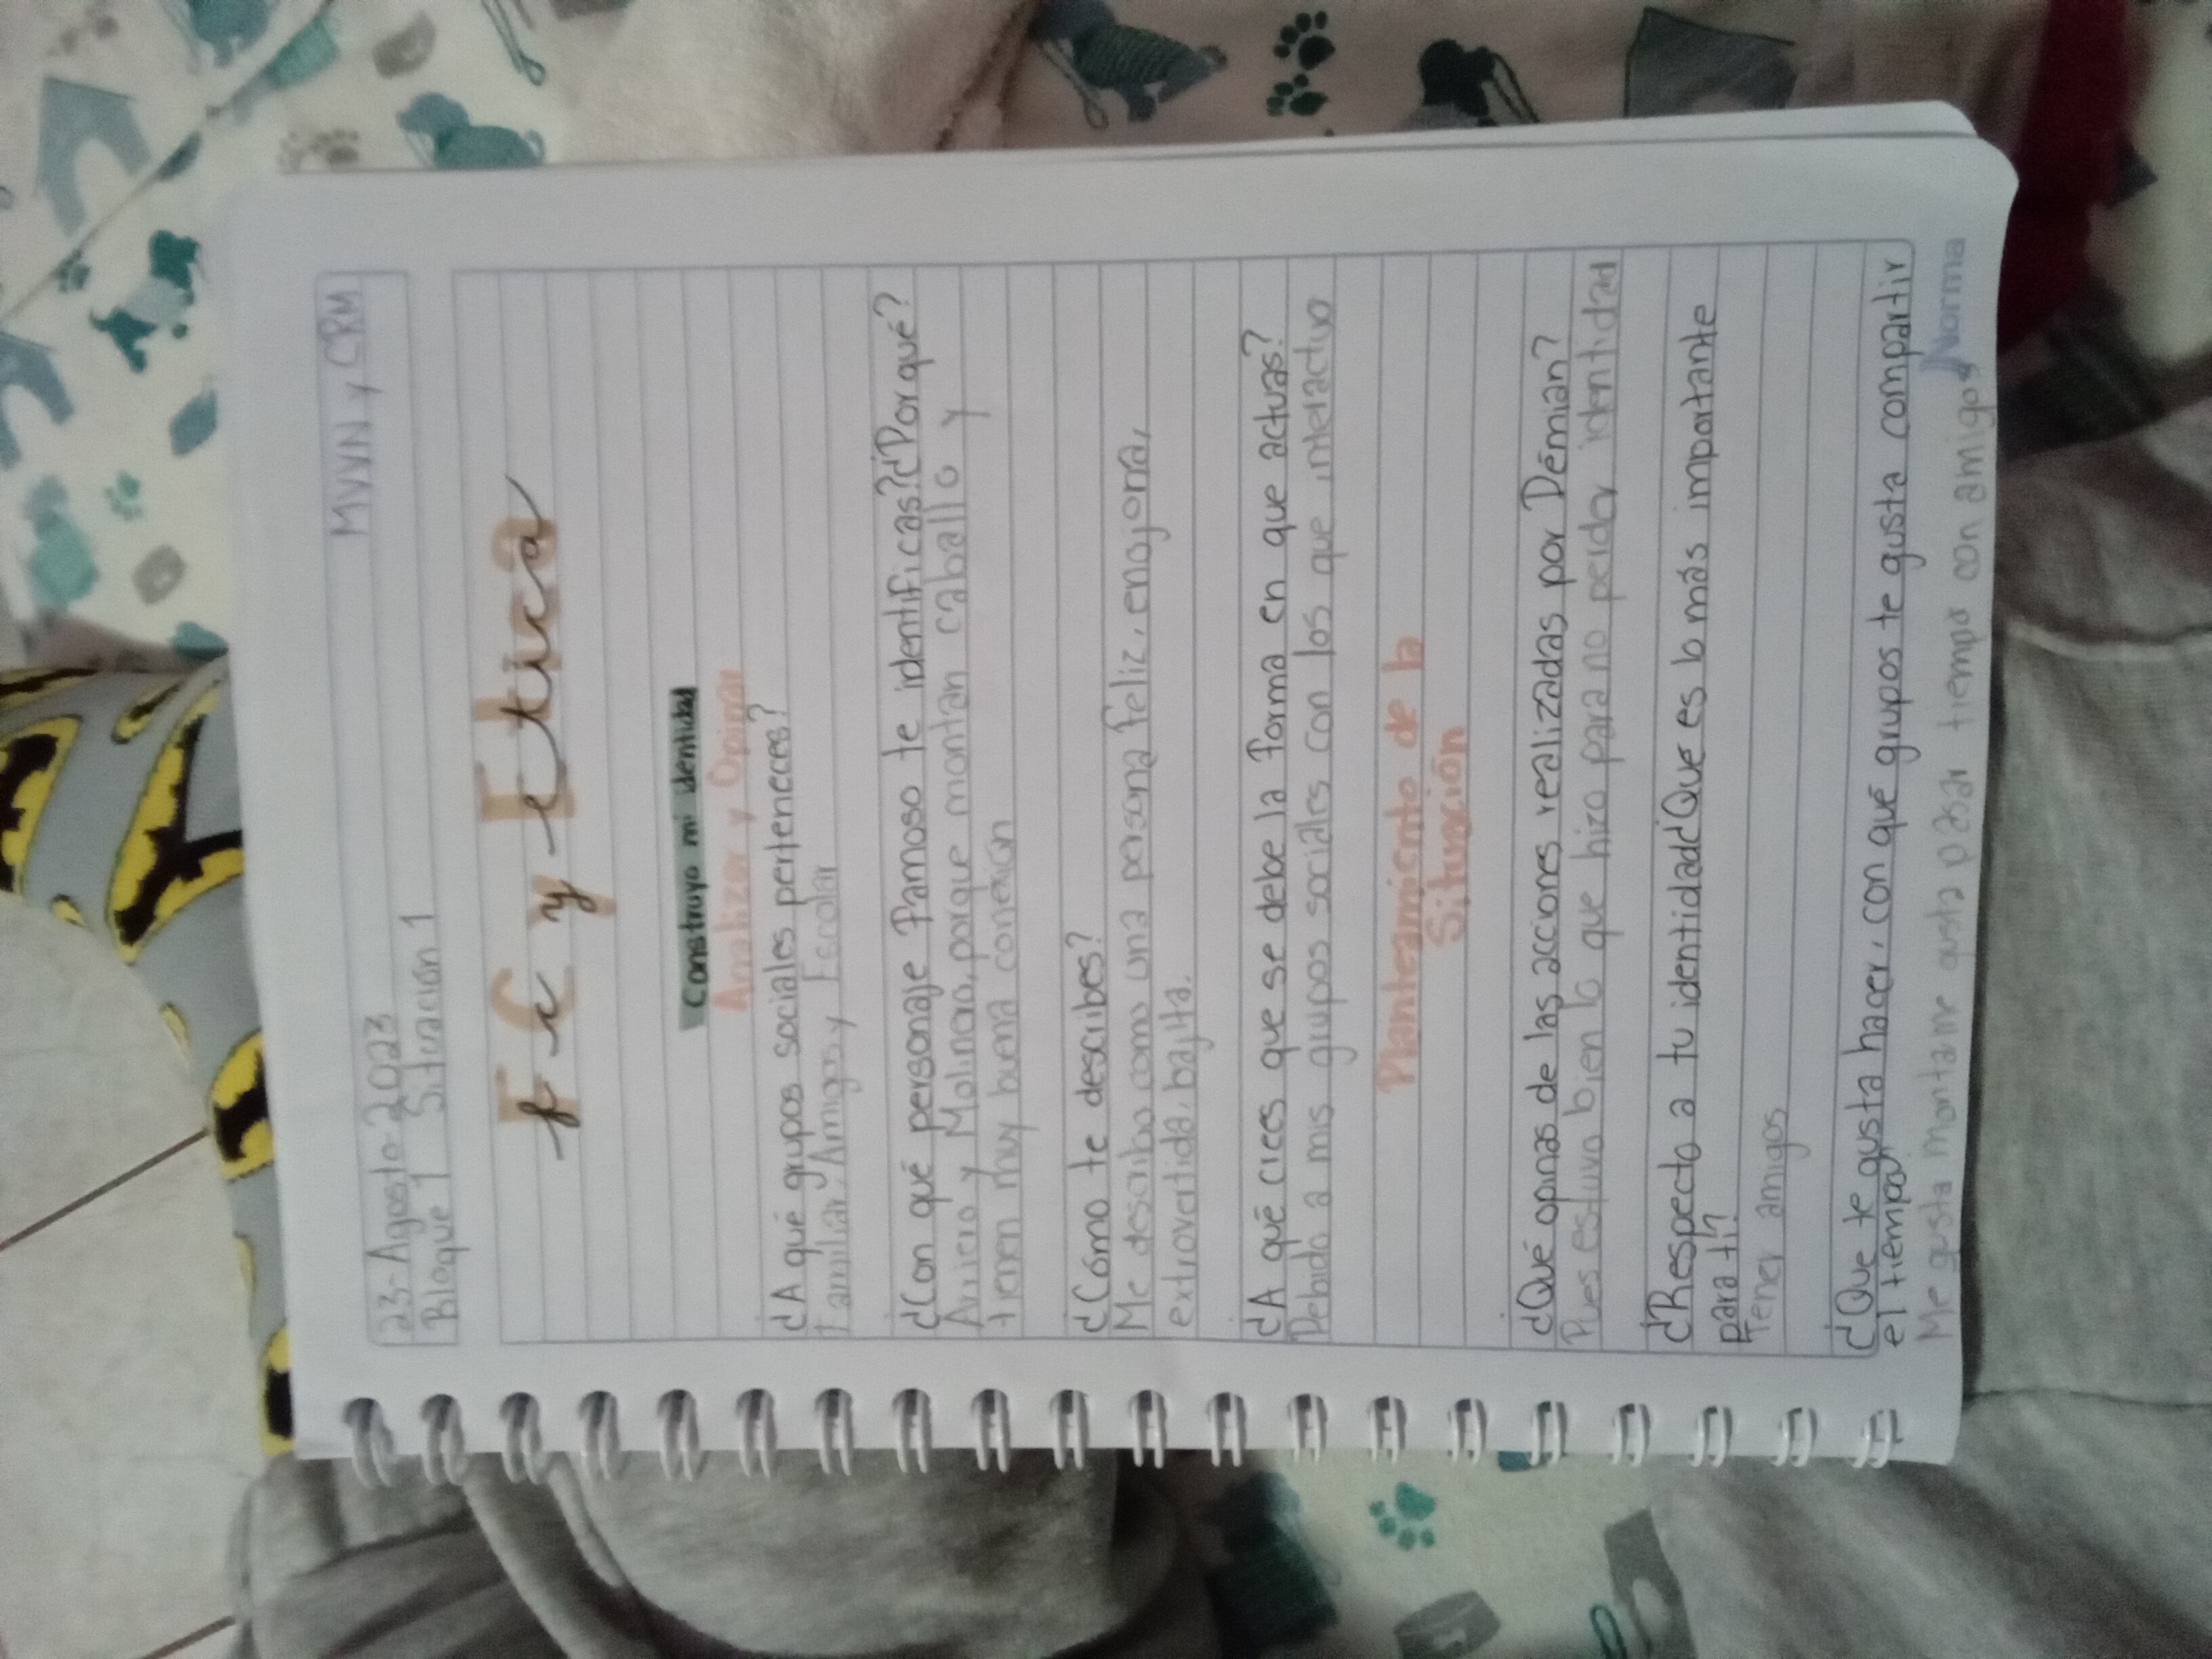 MVVN y CRM
23-Agosto-2023
Bloque 1 Situación 1
F C y Etica
Construyo mi identidad
Analizar y Opinar
¿A qué grupos sociales perteneces?
Familiar, Amigos y Escolar
¿Con qué personaje famoso te identificas?¿Por qué?
Arriero y Molinero, porque montan caballo y
tienen muy buena conexión
¿Cómo te describes?
Me describo como una persona feliz, enojona,
extrovertida, bajita.
¿A qué crees que se debe la forma en que actuas?
Debido a mis grupos sociales con los que interactuo
Planteamiento de la
Situación
¿Qué opinas de las acciones realizadas por Démian?
Pues estuvo bien lo que hizo para no perder identidad
¿Respecto a tu identidad¿Que es lo más importante
para ti?
Tener amigos
¿Que te gusta hacer, con qué grupos te gusta compartir
el tiempo?
Me gusta montar me gusta pasar tiempo con amigos
Norma